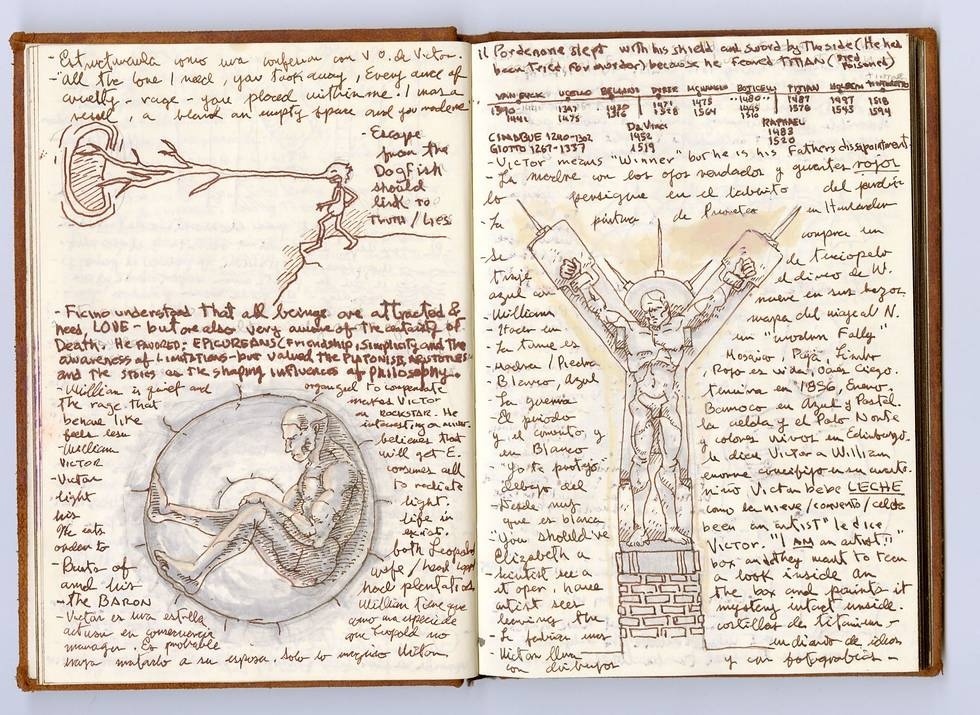 - Estructurada como una confesion con V.O. de Victor.
- "all the love I need, you took away, Every ounce of
cruelty - rage - you placed within me. I was a
vessel, a blend an empty space and you made me"
- Escape
from the
Dogfish
should
link to
Truth / Lies
- Ficino understood that all beings are attracted &
need LOVE - but are also very aware of the certainty of
Death. He favored: EPICUREANS (friendship, simplicity and the
awareness of Limitations - but valued the PLATONISTS, ARISTOTLES
and the stoics as the shaping influences of philosophy.
- William is grief and
organized to compensate
the rage that
makes VICTOR
a ROCKSTAR. He
behave like
believes that
- William
will get E.
VICTOR
consumes all
- Victor
to radiate
light
light.
life in
He eats
order to
both Leopold
- Parts of
wife / head
and his
had plantations
- the BARON
William tiene que
- Victor es una estrella
como una especie de
manager. Es probable
que Leopold no
haya matado a su esposa. Solo lo imagino William
il Pordenone slept with his shield and sword by the side (He had
been tried for murder) because he feared TITIAN (DIED
POISONED)
VAN EYCK UCCELLO BELLINI DURER MICHAELANG BOTICELLI TITIAN HOLBEIN TINTORETTO
1390 1397 1430 1471 1475 - 1480 - 1487 1497 1518
1441 1475 1516 1528 1564 1445 1510 1576 1543 1594
Da Vinci RAPHAEL
CIMABUE 1240-1302 1452 1483
GIOTTO 1267-1337 1519 1520
- VICTOR means "Winner" but he is his Fathers disappointment.
- La madre con los ojos vendados y guantes rojos
lo persigue en el laberinto del jardin
- La pintura de Prometeo en Hunterian
se compra un
tinte de terciopelo
azul con el disco de W.
- William nueve en sus brazos
- Hacer un mapa del viaje al N.
- La torre es un "modern Folly"
Madera / Piedra Mosaico, Paja, Limbo
- Blanco, Azul Rojo es vida, Oasis Ciego.
- La guerra termina en 1856, Enero.
- El periodo Barroco en Azul y Pastel
y el convento, y la celda y el Polo Norte
en Blanco y colores vivos en Edinburgo.
- "Yo te protejo" le dice Victor a William
debajo del enorme crucifijo en su cuarto.
- Desde muy niño Victor bebe LECHE
que es blanca como la nieve / convento / celda
"you should've been an artist" le dice
Elizabeth a VICTOR. "I AM an artist!"
scientist see a box and they want to tear
it open, have a look inside. An
artist sees the box and paints it
leaving the mystery intact inside.
- Le fabrica unas costillas de titanio -
- Victor lleva un diario de ideas
con dibujos y con fotografias -